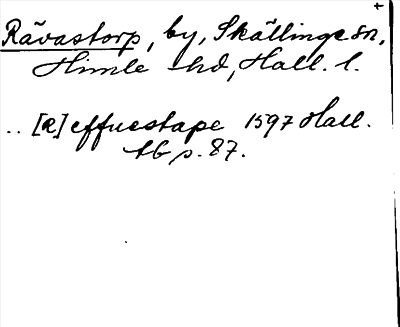 Rävastorp, by, Skällinge sn,
Himle hd, Hall. l.
.. [R]effuestape 1597 Hall.
tb p. 87.